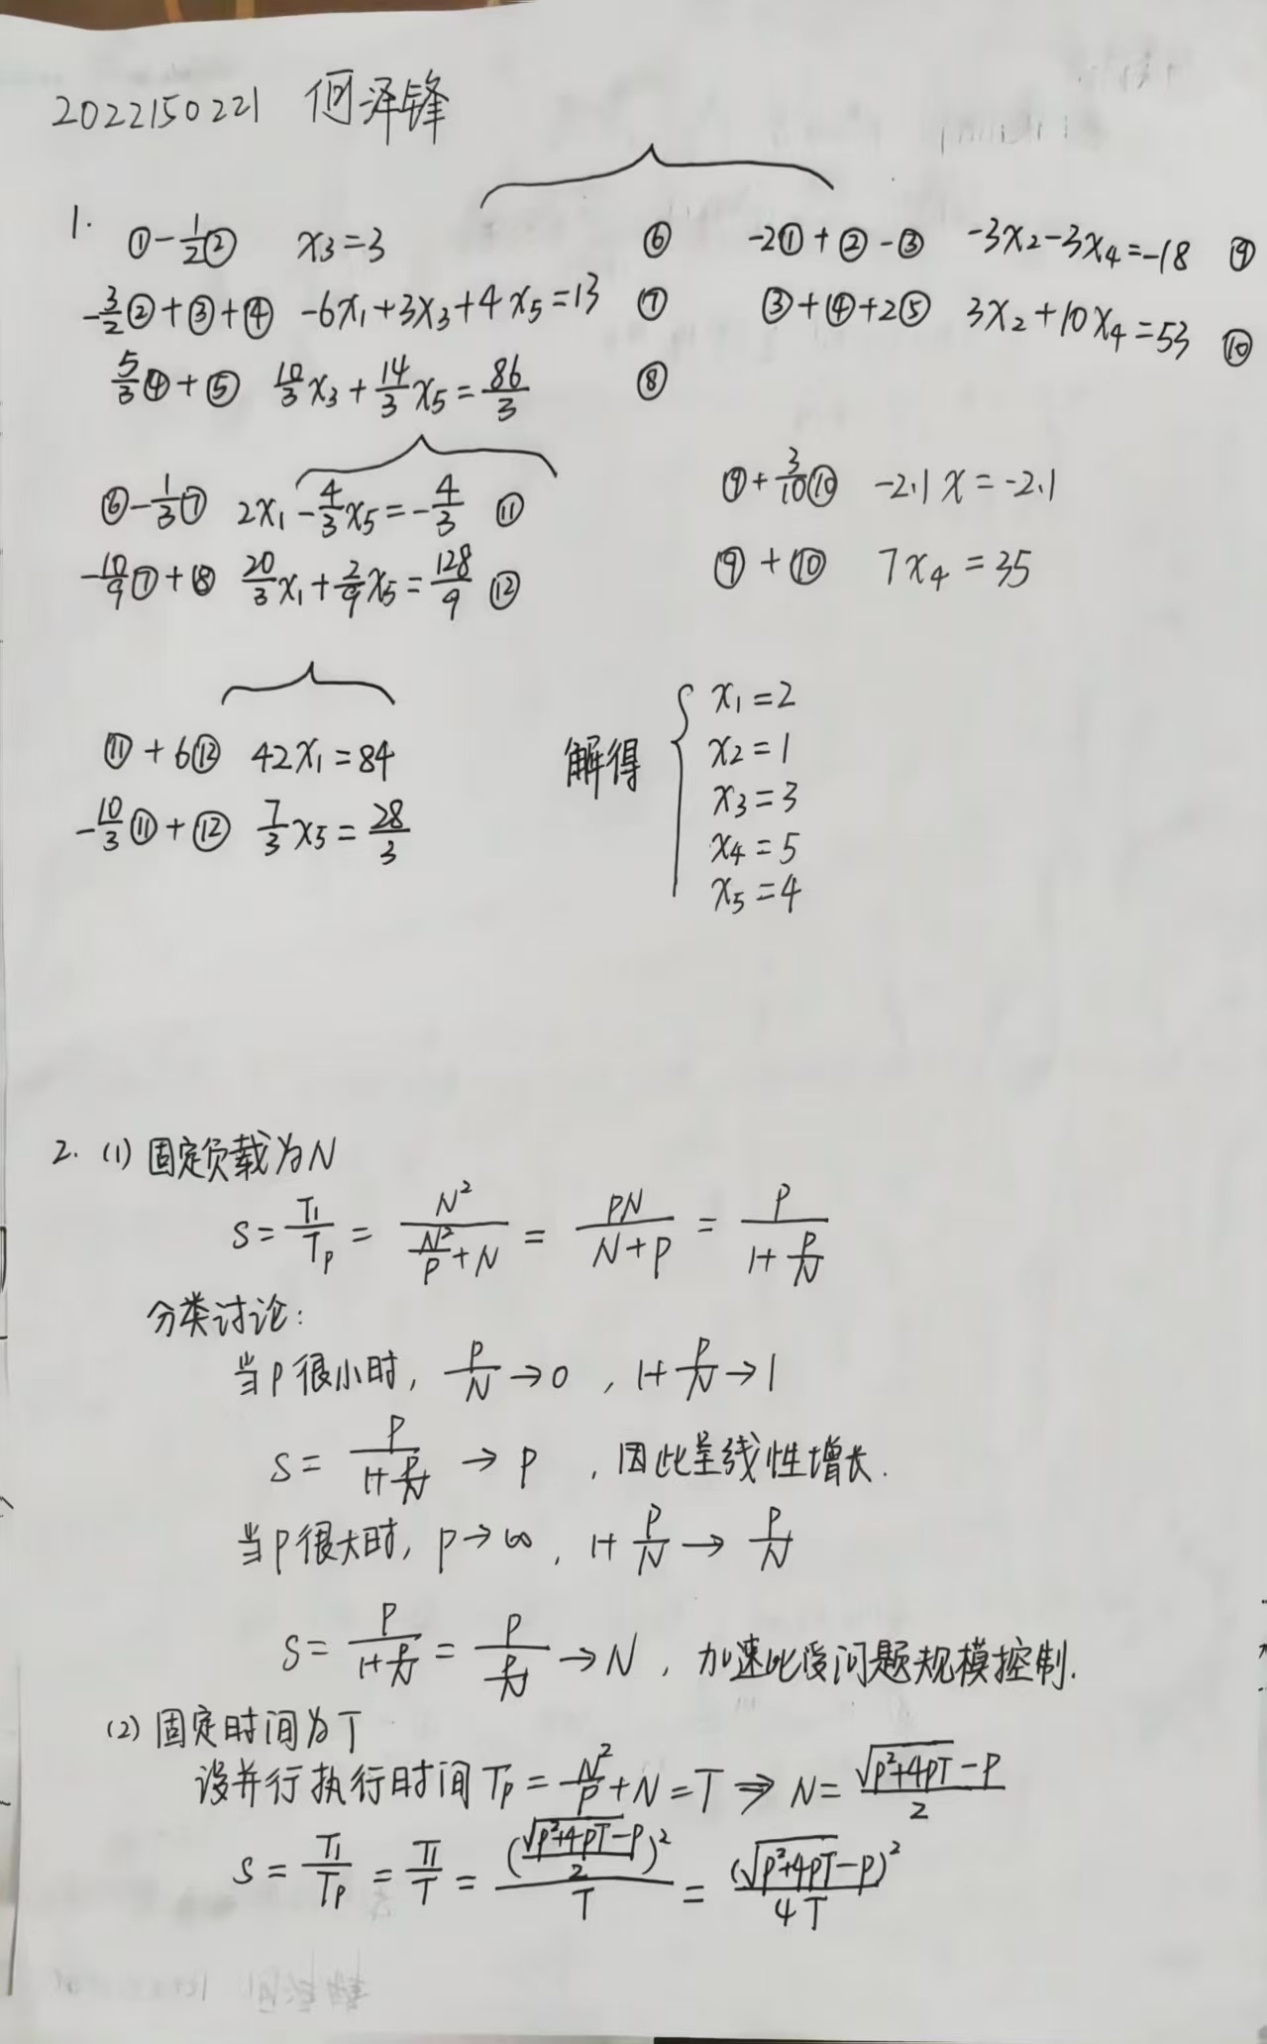 2022150221 何泽锋
1. ①-1/2② x₃=3 ⑥ -2①+②-③ -3x₂-3x₄=-18 ⑨
-3/2②+③+④ -6x₁+3x₃+4x₅=13 ⑦ ③+④+2⑤ 3x₂+10x₄=53 ⑩
5/3④+⑤ 10/3x₃+14/3x₅=86/3 ⑧
⑥-1/3⑦ 2x₁-4/3x₅=-4/3 ⑪ ⑨+3/10⑩ -2.1x=-2.1
-10/9⑦+⑧ 20/3x₁+2/9x₅=128/9 ⑫ ⑨+⑩ 7x₄=35
⑪+6⑫ 42x₁=84
-10/3⑪+⑫ 7/3x₅=28/3
解得 { x₁=2
x₂=1
x₃=3
x₄=5
x₅=4
2. (1) 固定负载为N
S=T₁/Tp = N²/(N²/P+N) = PN/(N+P) = P/(1+P/N)
分类讨论:
当P很小时, P/N→0, 1+P/N→1
S=P/(1+P/N)→P, 因此呈线性增长.
当P很大时, P→∞, 1+P/N→P/N
S=P/(1+P/N)=P/(P/N)→N, 加速比受问题规模控制.
(2) 固定时间为T
设并行执行时间Tp=N²/P+N=T⇒N=(√(P²+4PT)-P)/2
S=T₁/Tp=T₁/T=((√(P²+4PT)-P)/2)²/T=(√(P²+4PT)-P)²/4T